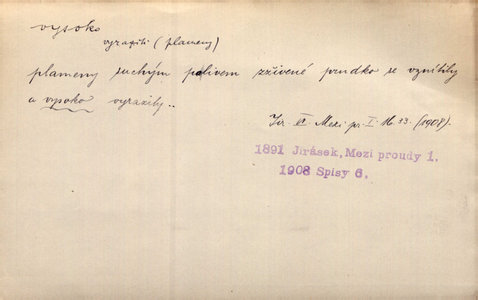 vysoko
vyraziti (plameny)
plameny suchým palivem zživené prudko se vznítily
a vysoko vyrazily..
Jir. Mezi pr. I. 33. (1908).
1891 Jirásek, Mezi proudy 1.
1908 Spisy 6.